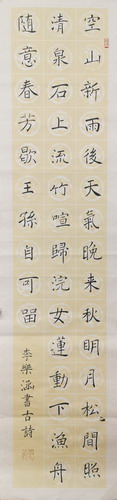 空山新雨後天氣晚来秋明月松間照
清泉石上流竹喧歸浣女蓮動下漁舟
随意春芳歇王孫自可留
李樂涵書古詩